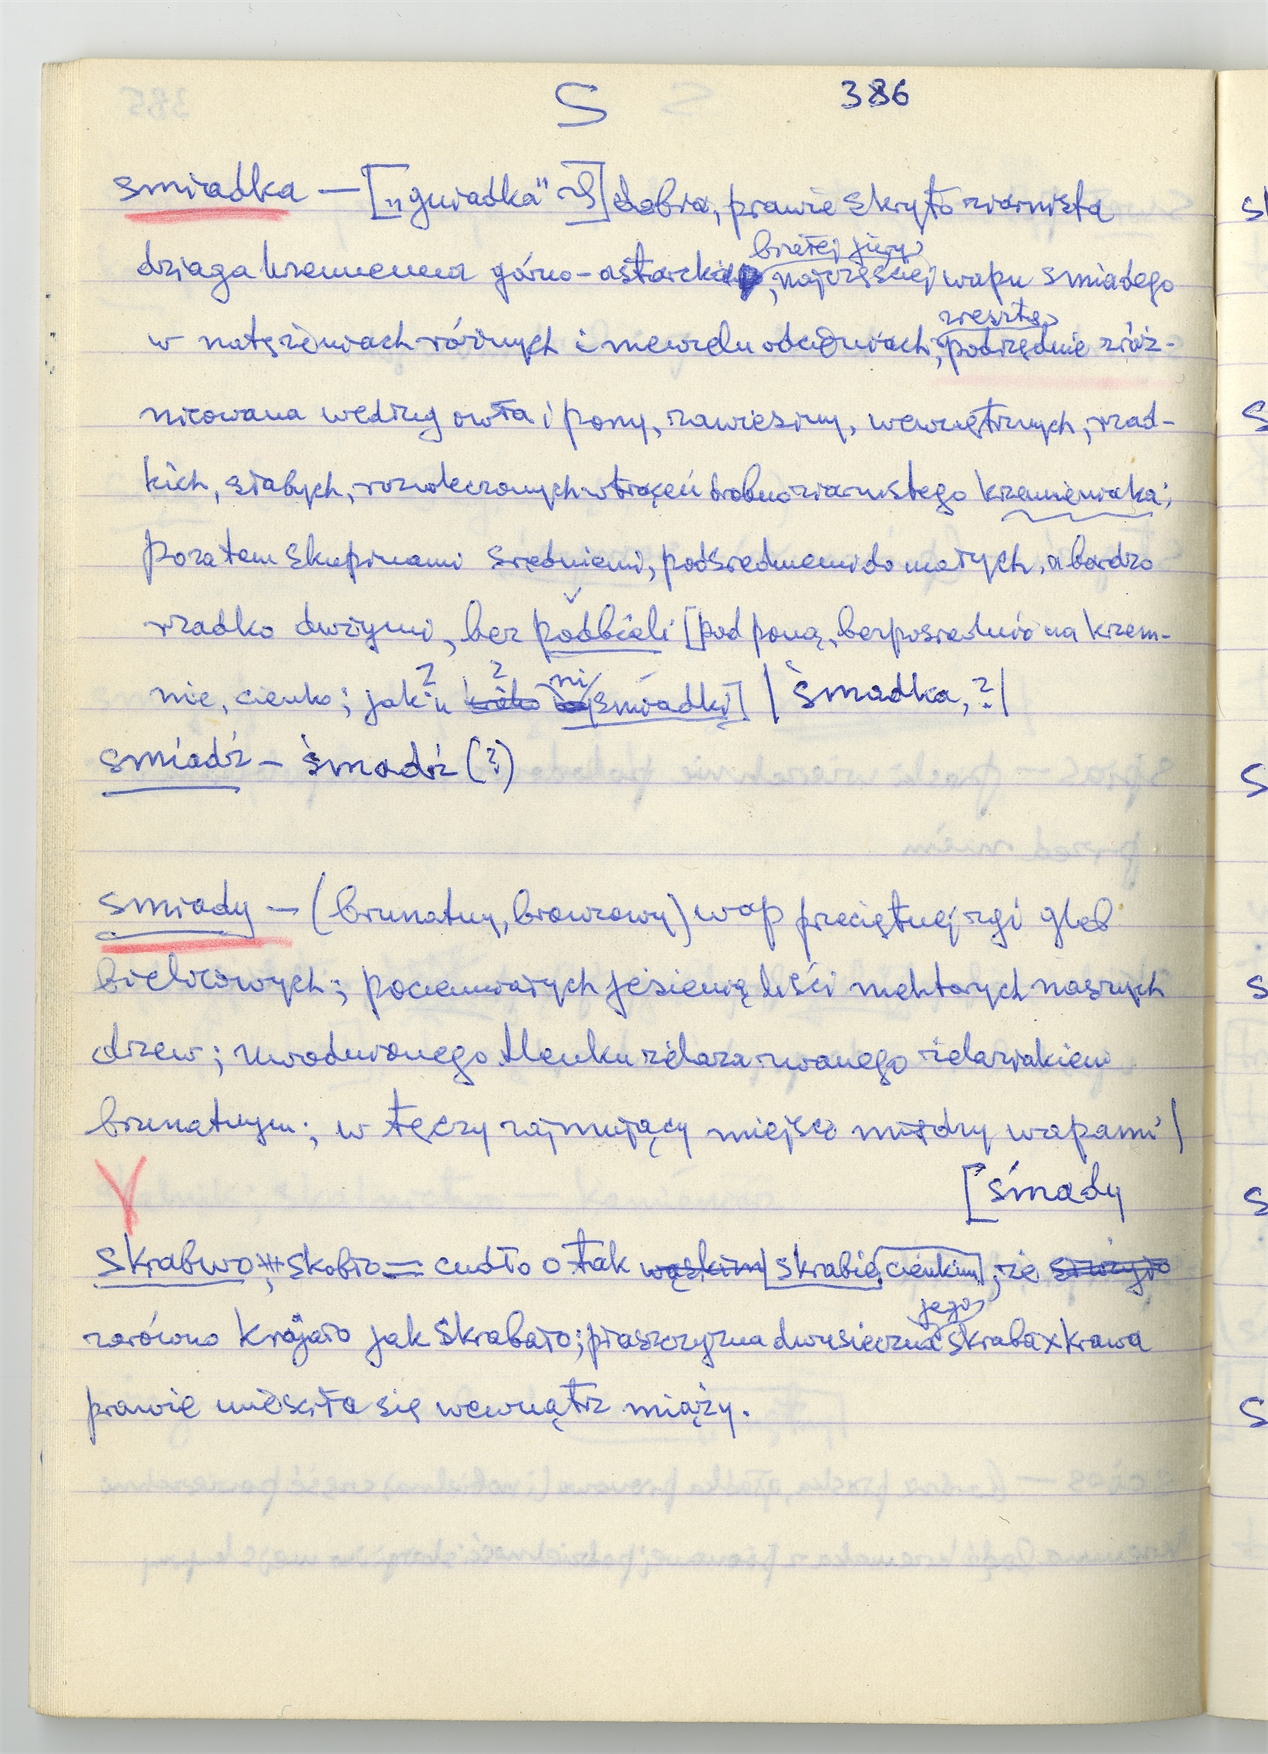 S 386
smiadka — [„gwiadka" ~S] dobra, prawie skrytoziarnista
białej jury
dziaga krzemienna górno-astarcka, najczęściej wapu smiadego
zresztą
w natężeniach różnych i niewielu odcieniach; podrzędnie zróż-
nicowana według owła i pony, zawiesiny, wewnętrznych, rzad-
kich, słabych, rozwleczonych wtrąceń drobnoziarnistego krzemieniaka;
pozatem skupinami średniemi, podśredniemi do małych, a bardzo
rzadko dużymi, bez podbieli [pod poną, bezpośrednio na krzem-
nie, cienko; jak u śmiadki] | śmadka, ? |
smiadź — śmadź (?)
smiady — (brunatny, brązowy) wap przeciętnej rgi gleb
bielicowych; pociemniałych jesienią liści niektórych naszych
drzew; uwodnionego tlenku żelaza zwanego żelaziakiem
brunatnym; w tęczy zajmujący miejsce między wapami |
[śmady
skrabwo, skobło = cudło o tak wąskim [skrabie, cienkim], że
jego
zarówno krajało jak skrabało; płaszczyzna dwusieczna skraba x krawa
prawie mieściła się wewnątrz miąży.